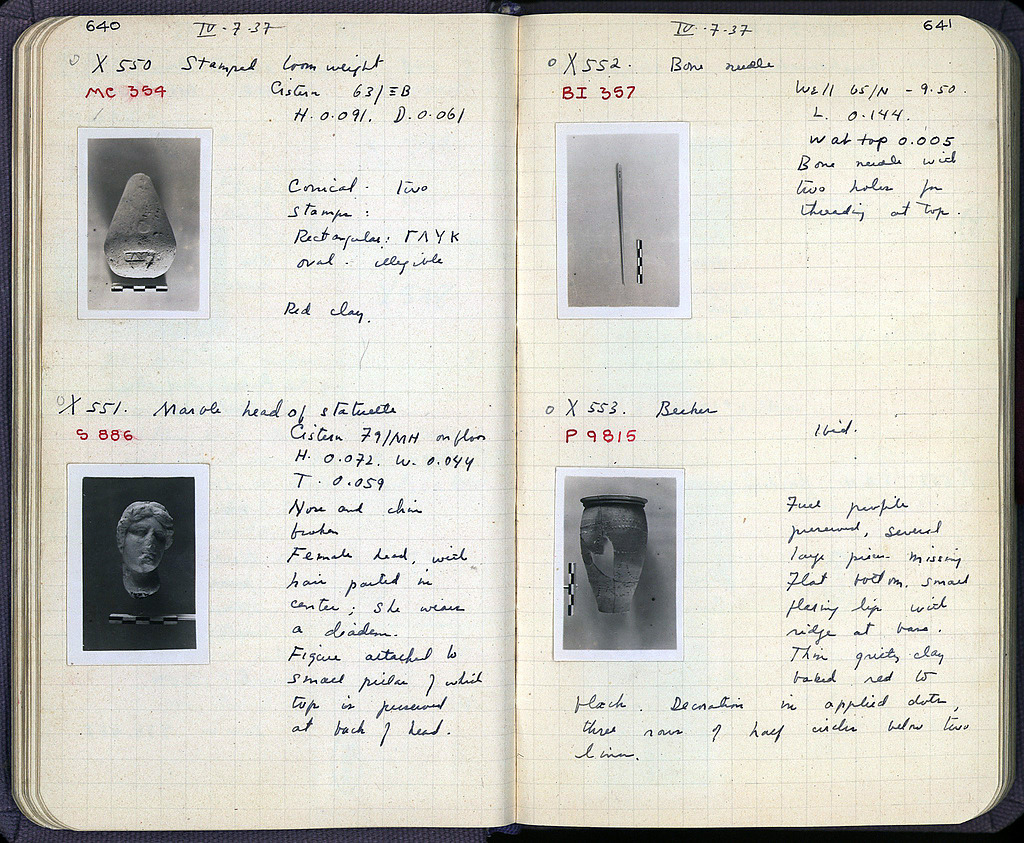 640
IV-7-37
X 550 Stamped loom weight
MC 354
Cistern 63/ΞB
H. 0.091. D. 0.061
Conical. Two
stamps:
Rectangular: ΓΛΥΚ
oval. illegible
Red clay.
X 551. Marble head of statuette
S 886
Cistern 79/ΜΗ on floor
H. 0.072. W. 0.044
T. 0.059
Nose and chin
broken
Female head, with
hair parted in
center; she wears
a diadem.
Figure attached to
small pillar of which
top is preserved
at back of head.
641
IV-7-37
X 552. Bone needle
BI 357
Well 65/N - 9.50.
L. 0.144.
W at top 0.005
Bone needle with
two holes for
threading at top.
X 553. Beaker
P 9815
Ibid.
Full profile
preserved, several
large pieces missing
Flat bottom, small
flaring lip with
ridge at base.
Thin gritty clay
baked red to
black. Decoration in applied dots,
three rows of half circles below two
lines.